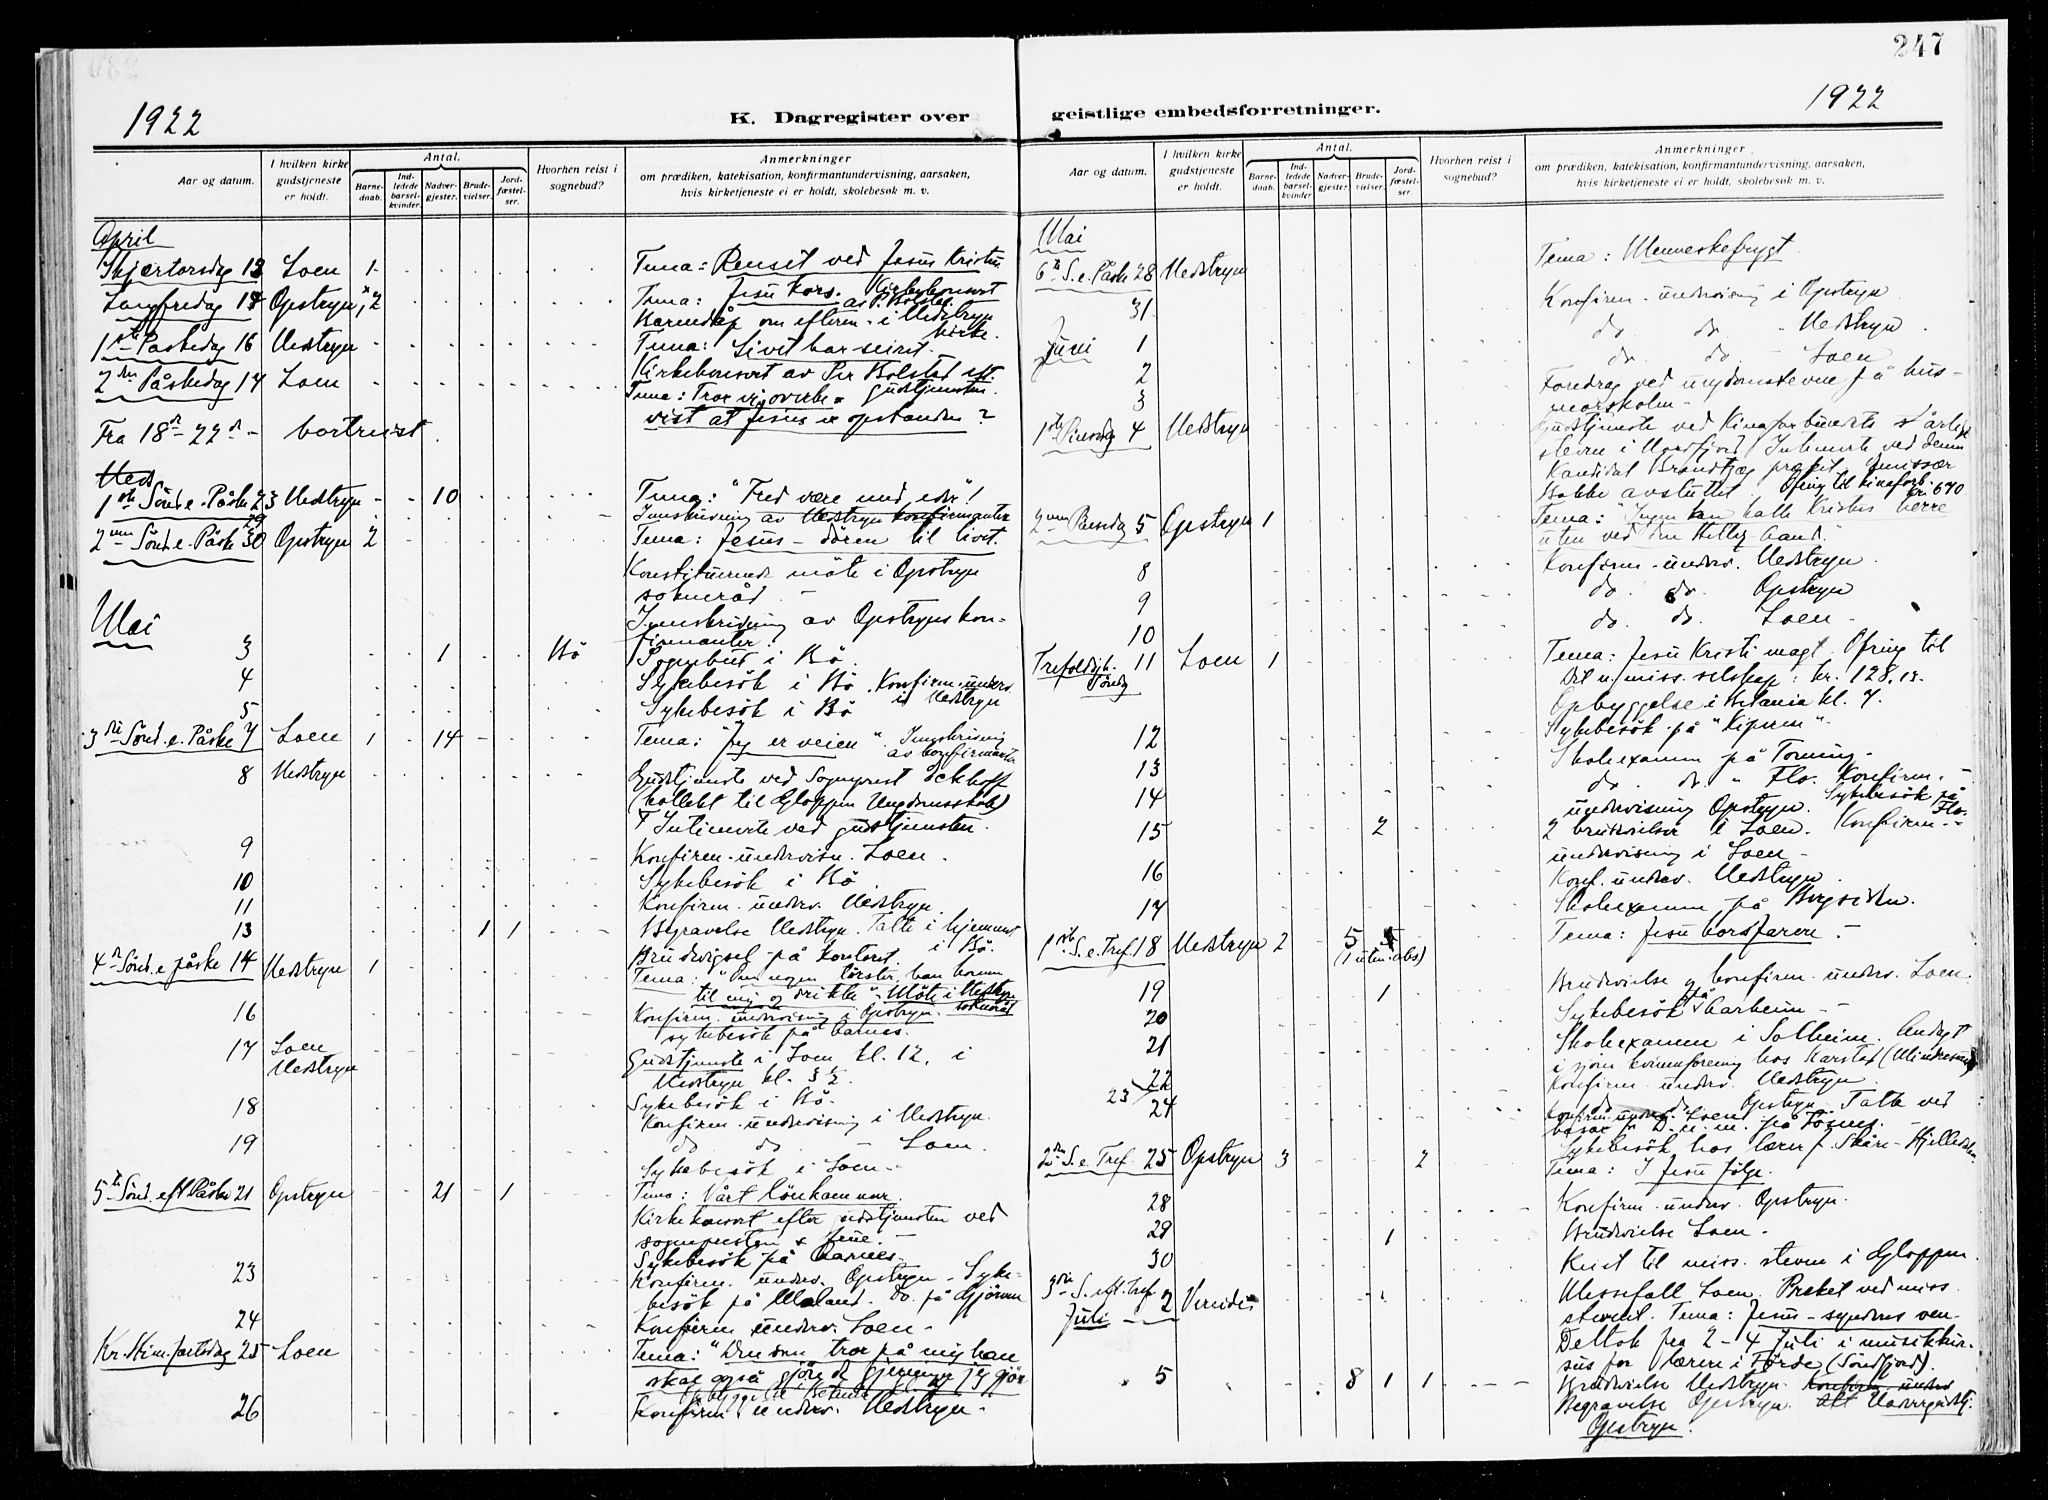 247
1922
1922
K. Dagregister over geistlige embedsforretninger.
Aar og datum.
I hvilken kirke gudstjeneste er holdt.
Antal.
Barnedaab.
Indledede barselkvinder.
Nadvergjester.
Brudevielser.
Jordfæstelser.
Hvorhen reist i sognebud?
Anmerkninger
om prædiken, katekisation, konfirmantundervisning, aarsaken,
hvis kirketjeneste ei er holdt, skolebesøk m. v.
April
Skjærtorsdag 13 Loen 1 Tema: Renset ved Jesus Kristus
Langfredag 14 Opstryn 2 Tema: Jesu kors. Kirkekonsert
av P. Bolstad.
Barnedåp om efterm. i Nedstryn
kirke.
1ste Påskedag 16 Nedstryn Tema: Livet har seiret.
2den Påskedag 17 Loen Kirkekonsert av Per Bolstad eft.
gudstjenesten.
Tema: Tror vi
vist at Jesus er opstanden?
Fra 18de-22de - bortreist.
1ste Sönd. e. Påske 23 Nedstryn 10 Tema: "Fred være med eder"!
Innskrivning av Nedstryn konfirmanter
2den Sönd. e. Påske 30 Opstryn 2 Tema: Jesus - dören til livet.
Konstituerende möte i Opstryn
sokneråd. -
Innskrivning av Opstryns kon-
firmanter.
Mai
3 1 Bö Sognebud i Bö.
4 Sykebesök i Bö. Konfirm. underv.
i Nedstryn
5 Sykebesök i Bö
3die Sönd. e. Påske 7 Loen 1 14 Tema: "Jeg er veien" Innskrivning
av konfirmanter
8 Nedstryn Gudstjeneste ved Sogneprest Eckhoff
(kollekt til Gloppen Ungdomsskole)
Intimerte ved gudstjenesten.
9 Konfirm. undervisn. Loen.
10 Sykebesök i Bö
11 Konfirm. underv. Nedstryn.
13 1 1 Begravelse Nedstryn. Talte i hjemmet
i Bö.
Brudevigsel på kontoret.
4de Sönd. e. påske 14 Nedstryn 1 Tema: "Om nogen törster, han komme
til mig og drikke" - Möte i Nedstryn
sokneråd
16 Konfirm. undervisning i Opstryn.
sykebesök på
17 Loen Gudstjeneste i Loen kl. 12, i
Nedstryn Nedstryn kl. 3½.
18 Sykebesök i Bö.
Konfirm. undervisning i Nedstryn.
19 do do - Loen.
Sykebesök i Loen.
5te Sönd. eft. Påske 21 Opstryn 21 1 Tema: Vårt lönkammer.
Kirkekonsert efter gudstjenesten ved
sognepresten & frue. -
Sykebesök på
23 Konfirm. underv. Opstryn - Syke-
besök på do. på
24 Konfirm underv. Loen -
Kr. Himmelfartsdag 25 Loen Tema: "Den som tror på mig han
skal også gjöre de gjerninger jeg gjör
26 Konfirm underv. Nedstryn.
Aar og datum.
I hvilken kirke gudstjeneste er holdt.
Antal.
Barnedaab.
Indledede barselkvinder.
Nadvergjester.
Brudevielser.
Jordfæstelser.
Hvorhen reist i sognebud?
Anmerkninger
om prædiken, katekisation, konfirmantundervisning, aarsaken,
hvis kirketjeneste ei er holdt, skolebesøk m. v.
Mai
6te S. e. Påske 28 Nedstryn Tema: Menneskefrygt.
31 Konfirm. undervisning i Opstryn
Juni 1 do do - Nedstryn
2 do do - Loen
3 Foredrag ved ungdomsstevne på hus-
morskolen -
1ste Pinsedag 4 Nedstryn Gudstjeneste ved Kinaforbundets årlige
stevne i Nordfjord. Intimerte ved denne
Kandidat prekte. Emissær
Bakke avsluttet. Ofring til Kinaforb.
kr. 640
2den Pinsedag 5 Opstryn 1 Tema: "Ingen kan kalle Kristus herre
uten ved den Hellig-Aand.
8 Konfirm. underv. Nedstryn.
9 do. do. Opstryn
10 do. do. Loen -
Trefoldigh. 11 Loen 1 Tema: Jesu Kristi magt. Ofring til
söndag Det n. miss. selskap: kr. 128,13.
Opbyggelse i Betania kl. 7.
12 Sykebesök på
13 Skoleexamen på Tonning -
14 do. do. " Flo. Konfirm. -
undervisning Opstryn. Sykebesök på
Flo.
15 2 2 brudevielser i Loen. Konfirm.-
undervisning i Loen -
16 Konf. underv. Nedstryn.
17 Skoleexamen på
1ste S. e. Tref. 18 Nedstryn 2 5 Tema: Jesu korsfarere.-
19 1 Brudevielse og konfirm. underv. Loen.
20 Sykebesök på Aarheim -
21 Skoleexamen i Solheim. Andagt
i sjöm. kvinneforening hos
22 Konfirm. underv. Nedstryn.
23/24 do do Opstryn. Tale ved
Loen
D. n. m. på
Sykebesök hos lærer J. Skåre - Hjelledalen
2den S. e. Tref. 25 Opstryn 3 2 Tema: I Jesu fölge.
28 Konfirm. underv. Opstryn.
29 1 Brudevielse Loen -
30 Reist til miss. stevne i Gloppen.
3die S. eft. Tref. Messefall Loen. Preket ved miss.
Juli - 2 stevnet. Tema: Jesus - syndernes ven.
Deltok fra 2-4 Juli i musikkur-
sus for lærere i Förde (Söndfjord).
5 8 1 1 Brudevielse Nedstryn. Konfirm. underv
Begravelse Opstryn.
Opstryn.